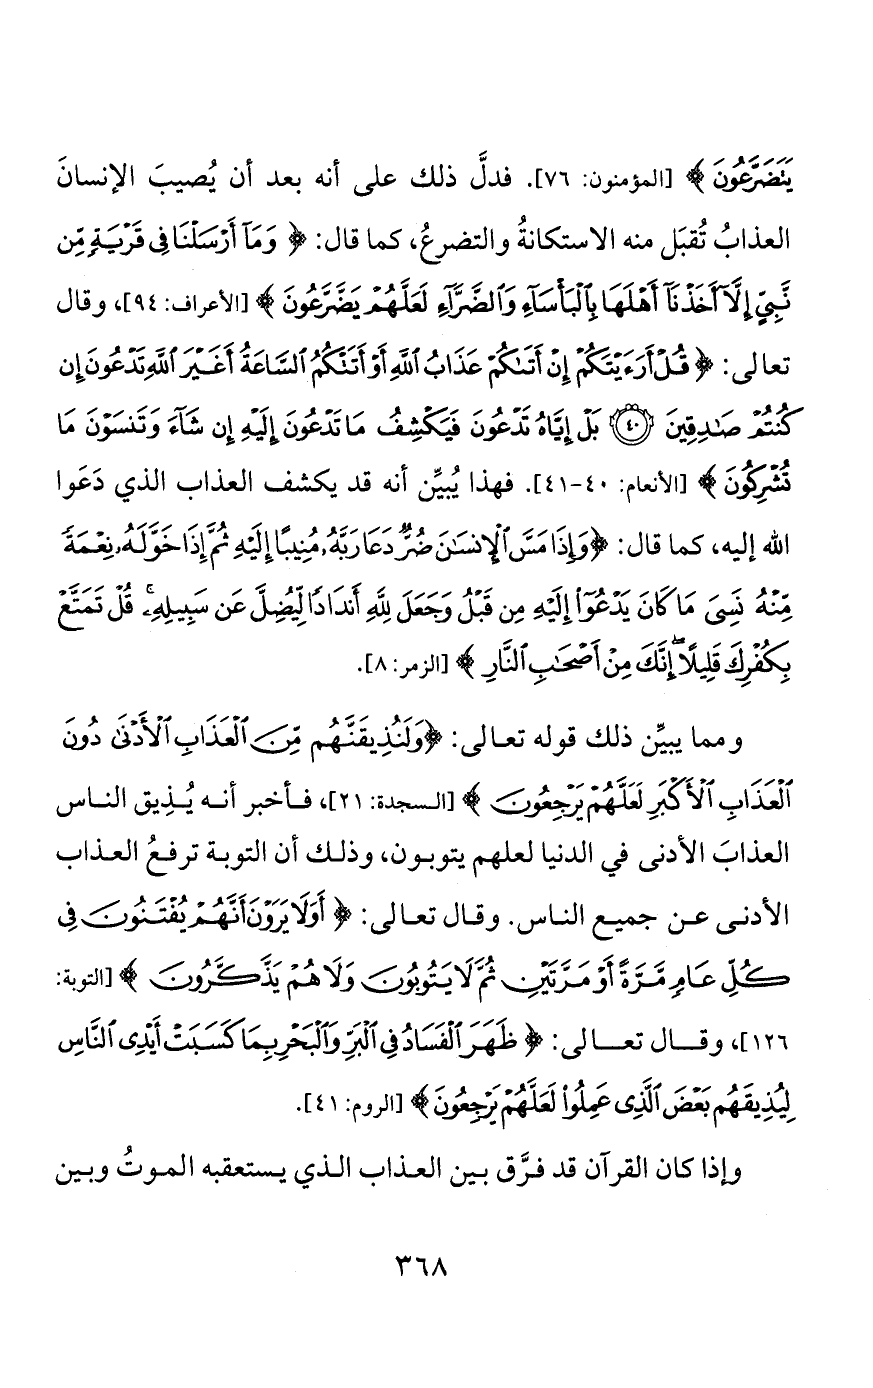 يَتَضَرَّعُونَ ﴾ [المؤمنون: ٧٦]. فدلَّ ذلك على أنه بعد أن يُصيبَ الإنسانَ
العذابُ تُقبَل منه الاستكانةُ والتضرعُ، كما قال: ﴿ وَمَآ أَرْسَلْنَا فِى قَرْيَةٍ مِّن
نَّبِىٍّ إِلَّآ أَخَذْنَآ أَهْلَهَا بِٱلْبَأْسَآءِ وَٱلضَّرَّآءِ لَعَلَّهُمْ يَضَّرَّعُونَ ﴾ [الأعراف: ٩٤]، وقال
تعالى: ﴿ قُلْ أَرَءَيْتَكُمْ إِنْ أَتَىٰكُمْ عَذَابُ ٱللَّهِ أَوْ أَتَتْكُمُ ٱلسَّاعَةُ أَغَيْرَ ٱللَّهِ تَدْعُونَ إِن
كُنتُمْ صَـٰدِقِينَ ٤٠ بَلْ إِيَّاهُ تَدْعُونَ فَيَكْشِفُ مَا تَدْعُونَ إِلَيْهِ إِن شَآءَ وَتَنسَوْنَ مَا
تُشْرِكُونَ ﴾ [الأنعام: ٤٠-٤١]. فهذا يُبيِّن أنه قد يكشف العذاب الذي دَعَوا
الله إليه، كما قال: ﴿وَإِذَا مَسَّ ٱلْإِنسَـٰنَ ضُرٌّ دَعَا رَبَّهُۥ مُنِيبًا إِلَيْهِ ثُمَّ إِذَا خَوَّلَهُۥ نِعْمَةً
مِّنْهُ نَسِىَ مَا كَانَ يَدْعُوٓا۟ إِلَيْهِ مِن قَبْلُ وَجَعَلَ لِلَّهِ أَندَادًا لِّيُضِلَّ عَن سَبِيلِهِۦ ۚ قُلْ تَمَتَّعْ
بِكُفْرِكَ قَلِيلًا ۖ إِنَّكَ مِنْ أَصْحَـٰبِ ٱلنَّارِ ﴾ [الزمر: ٨].
ومما يبيِّن ذلك قوله تعالى: ﴿وَلَنُذِيقَنَّهُم مِّنَ ٱلْعَذَابِ ٱلْأَدْنَىٰ دُونَ
ٱلْعَذَابِ ٱلْأَكْبَرِ لَعَلَّهُمْ يَرْجِعُونَ ﴾ [السجدة: ٢١]، فأخبر أنه يُذِيق الناس
العذابَ الأدنى في الدنيا لعلهم يتوبون، وذلك أن التوبة ترفعُ العذاب
الأدنى عن جميع الناس. وقال تعالى: ﴿ أَوَلَا يَرَوْنَ أَنَّهُمْ يُفْتَنُونَ فِى
كُلِّ عَامٍ مَّرَّةً أَوْ مَرَّتَيْنِ ثُمَّ لَا يَتُوبُونَ وَلَا هُمْ يَذَّكَّرُونَ ﴾ [التوبة:
١٢٦]، وقال تعالى: ﴿ ظَهَرَ ٱلْفَسَادُ فِى ٱلْبَرِّ وَٱلْبَحْرِ بِمَا كَسَبَتْ أَيْدِى ٱلنَّاسِ
لِيُذِيقَهُم بَعْضَ ٱلَّذِى عَمِلُوا۟ لَعَلَّهُمْ يَرْجِعُونَ ﴾ [الروم: ٤١].
وإذا كان القرآن قد فرَّق بين العذاب الذي يستعقبه الموتُ وبين
٣٦٨